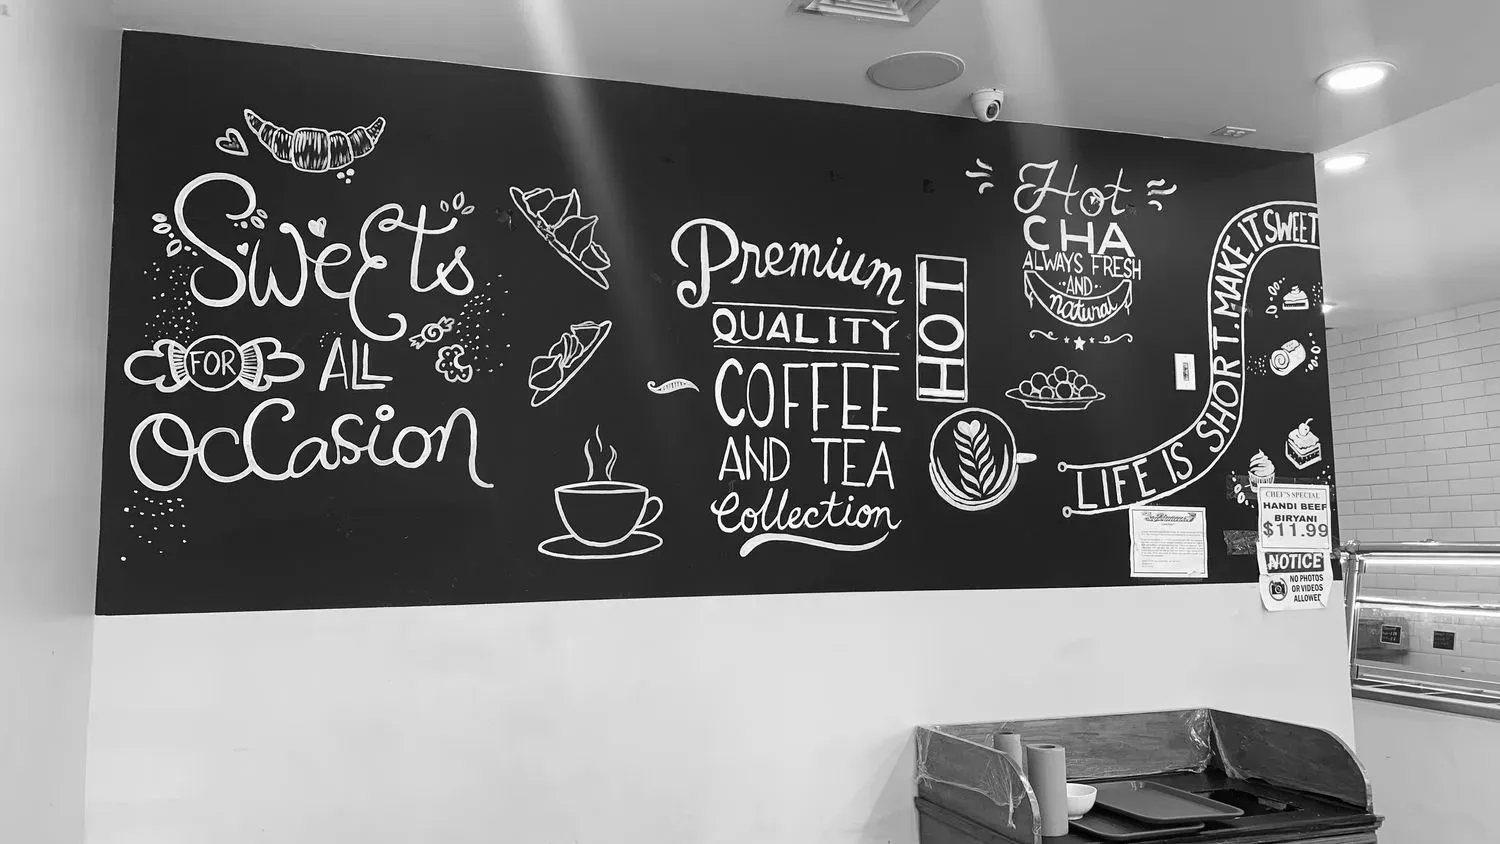 Sweets
FOR ALL
OcCasion
Premium
QUALITY
COFFEE
AND TEA
Collection
HOT
Hot
CHA
ALWAYS FRESH
AND
natural
LIFE IS SHORT. MAKE IT SWEET
CHEF'S SPECIAL
HANDI BEEF
BIRYANI
$11.99
NOTICE
NO PHOTOS
OR VIDEOS
ALLOWED